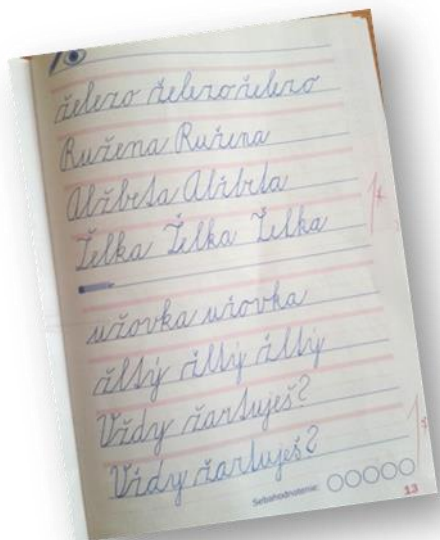 železo železo železo
Ružena Ružena
Alžbeta Alžbeta
Želka Želka Želka
užovka užovka
žltý žltý žltý
Vždy žartuješ?
Vždy žartuješ?
Sebahodnotenie:
13